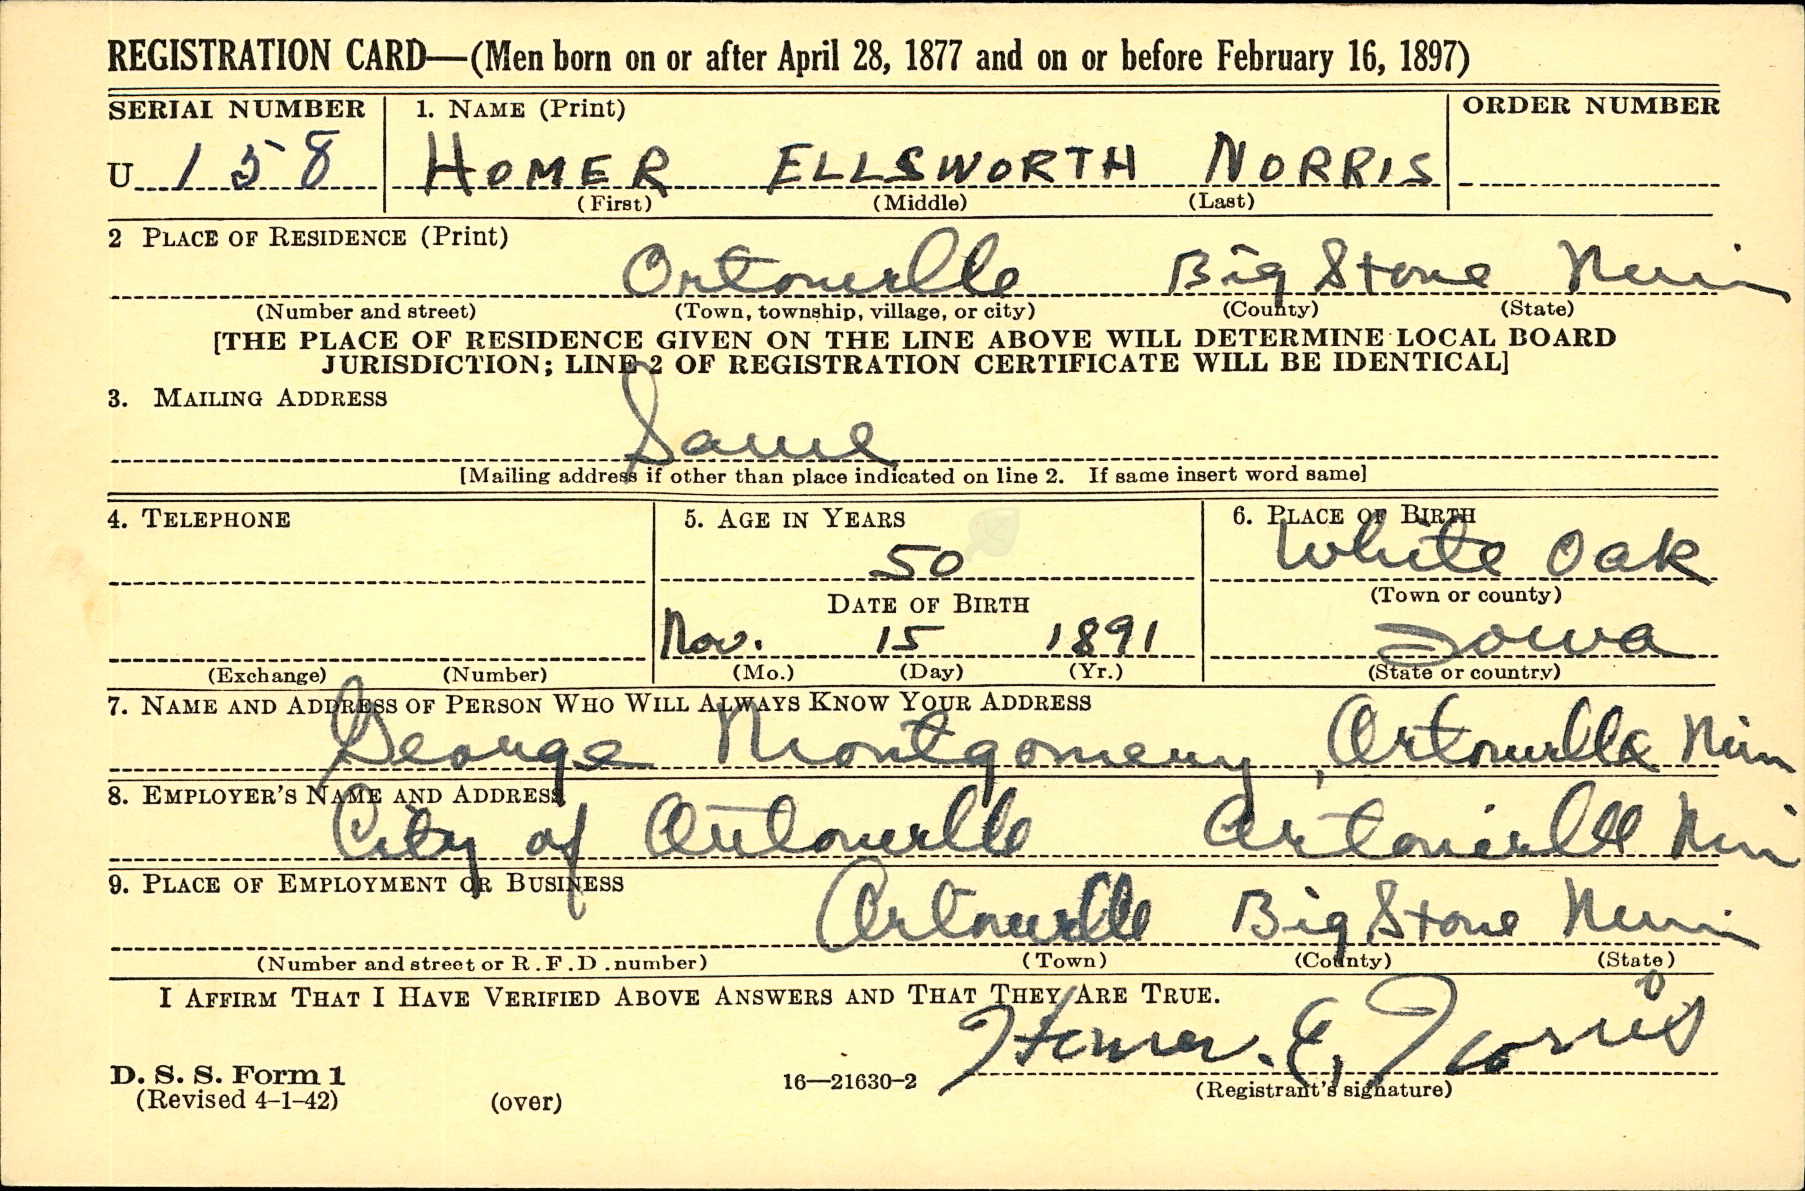 REGISTRATION CARD—(Men born on or after April 28, 1877 and on or before February 16, 1897)
SERIAL NUMBER 1. NAME (Print) ORDER NUMBER
U 158 HOMER ELLSWORTH NORRIS
(First) (Middle) (Last)
2 PLACE OF RESIDENCE (Print)
Ortonville Big Stone Minn
(Number and street) (Town, township, village, or city) (County) (State)
[THE PLACE OF RESIDENCE GIVEN ON THE LINE ABOVE WILL DETERMINE LOCAL BOARD
JURISDICTION; LINE 2 OF REGISTRATION CERTIFICATE WILL BE IDENTICAL]
3. MAILING ADDRESS
Same
[Mailing address if other than place indicated on line 2. If same insert word same]
4. TELEPHONE 5. AGE IN YEARS 6. PLACE OF BIRTH
50 White Oak
DATE OF BIRTH (Town or county)
Nov. 15 1891 Iowa
(Exchange) (Number) (Mo.) (Day) (Yr.) (State or country)
7. NAME AND ADDRESS OF PERSON WHO WILL ALWAYS KNOW YOUR ADDRESS
George Montgomery, Ortonville Minn
8. EMPLOYER'S NAME AND ADDRESS
City of Ortonville Ortonville Minn
9. PLACE OF EMPLOYMENT OR BUSINESS
Ortonville Big Stone Minn
(Number and street or R.F.D. number) (Town) (County) (State)
I AFFIRM THAT I HAVE VERIFIED ABOVE ANSWERS AND THAT THEY ARE TRUE.
Homer. E, Norris
D. S. S. Form 1
(Revised 4-1-42) (over) 16—21630-2 (Registrant's signature)